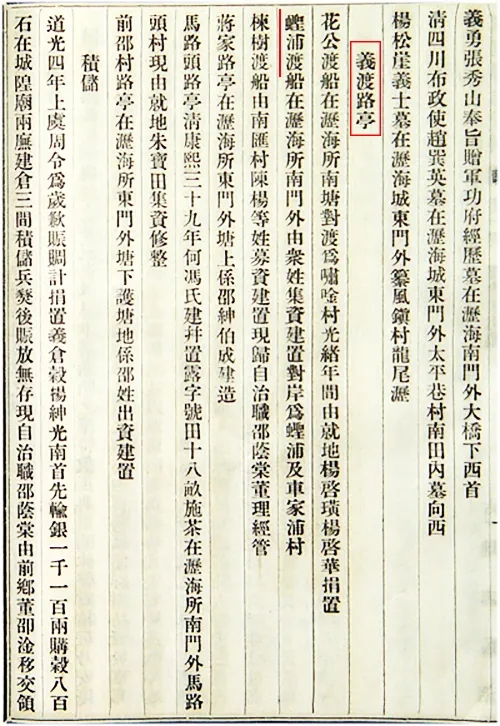 義勇張秀山奉旨贈軍功府經歷墓在瀝海南門外大橋下西首
清四川布政使趙巽英墓在瀝海城東門外太平巷村南田內墓向西
楊松崖義士墓在瀝海城東門外纂風鎮村龍尾瀝
義渡路亭
花公渡船在瀝海所南塘對渡爲嘯唫村光緒年間由就地楊啓璜楊啓華捐置
蟶浦渡船在瀝海所南門外由衆姓集資建置對岸爲蟶浦及車家浦村
楝樹渡船由南匯村陳楊等姓募資建置現歸自治職邵蔭棠董理經管
蔣家路亭在瀝海所東門外塘上係邵紳伯成建造
馬路頭路亭清康熙三十九年何馮氏建幷置露字號田十八畝施茶在瀝海所南門外馬路
頭村現由就地朱寶田集資修整
前邵村路亭在瀝海所東門外塘下護塘地係邵姓出資建置
積儲
道光四年上虞周令爲歲歉賑賙計捐置義倉穀楊紳光南首先輸銀一千一百兩購穀八百
石在城隍廟兩廡建倉三間積儲兵燹後賑放無存現自治職邵蔭棠由前鄉董邵淦移交領